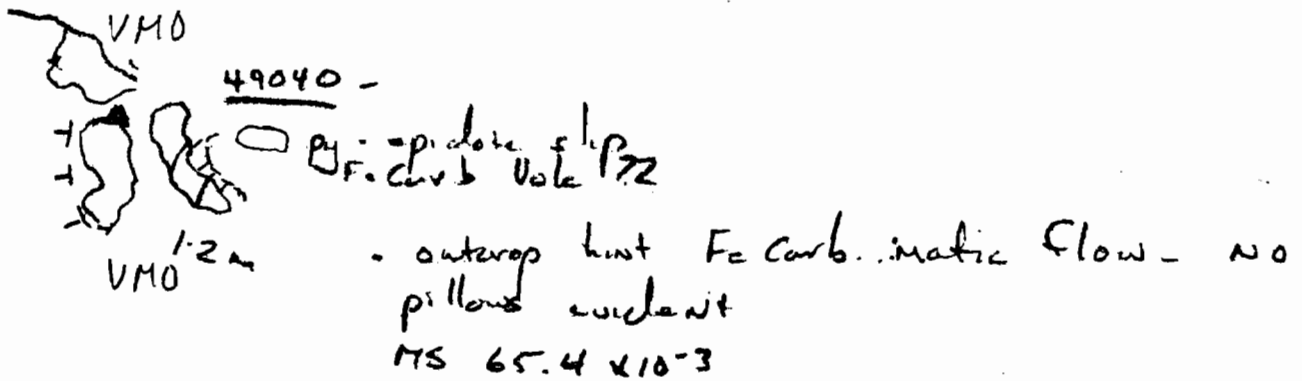 VMO
49040 -
py
Fe Carb Volc
1-2 m
VMO
• outcrop Fe Carb mafic Flow - NO
pillows evident
MS 65.4 x10-3